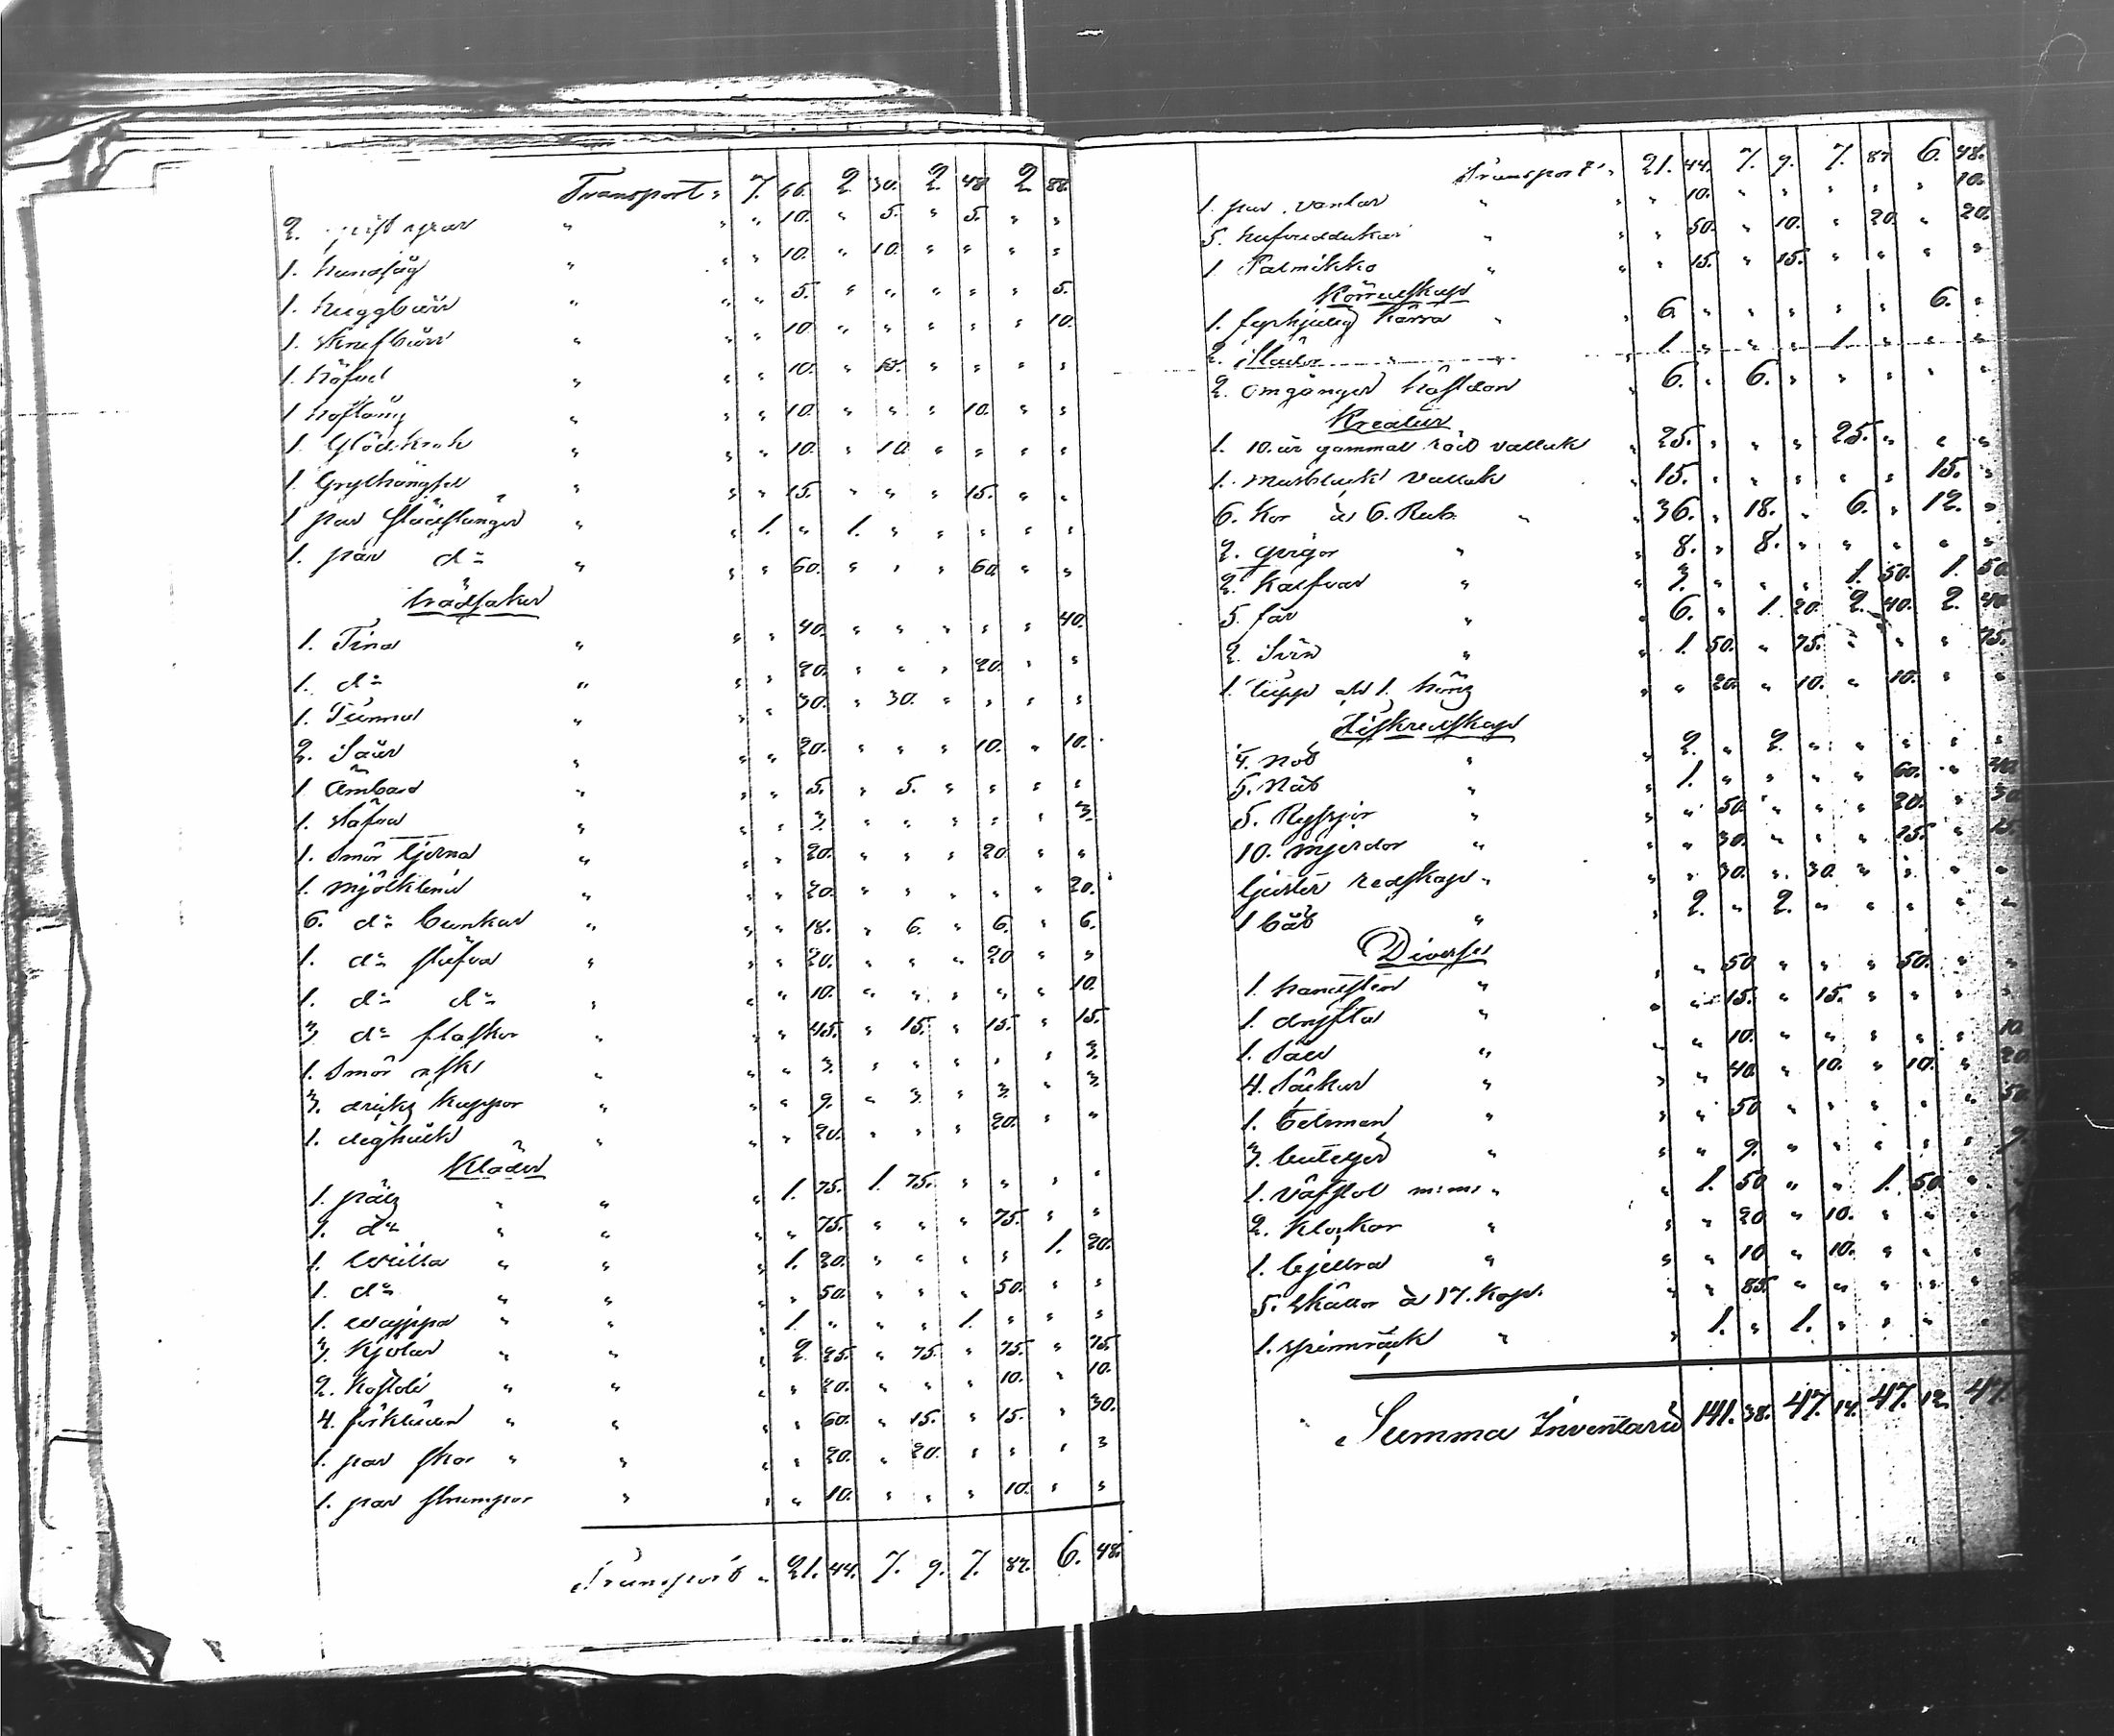 Transport " 7. 66. 2 30. 2. 48 2 88.
2. " " " 10. " 5. " 5. " "
1. handsåg " " " 10. " 10. " " " "
1. huggbörr " " " 5. " " " " " 5.
1. " " " 10. " " " " " 10.
1. höfvel " " " 10. " 15. " " " "
1 hoftång " " " 10. " " " 10. " "
1. Glödkrok " " " 10. " 10 " " " "
1. Grythängsel " " " 15. " " " 15. " "
1 par slädstänger " " 1. " 1. " " " " "
1. par d:o " " " 60. " " " 60 " "
trädsaker
1. Tina " " " 40. " " " " " 40.
1. d:o " " " 20. " " " 20. " "
1. Tunna " " " 30. " 30. " " " "
2. Såar " " " 20. " " " 10. " 10.
1 Ämbar " " " 5. " 5. " " " "
1. stäfva " " " 3. " " " " " 3.
1. Smör tjerna " " " 20. " " " 20. " "
1. mjölk " " " 20. " " " " " 20.
6. d:o bunkar " " " 18. " 6. " 6. " 6.
1. d:o stäfva " " " 20. " " " 20 " "
1. d:o d:o " " " 10. " " " " " 10.
3 d:o flaskor " " " 45. " 15. " 15. " 15.
1. Smör ask " " " 3. " " " " " 3.
3. kappor " " " 9. " 3. " 3. " 3.
1. deg " " " 20. " " " 20. " "
Kläder
1. päls " " " 1. 75. 1. 75. " " " "
1. d:o " " " " 75. " " " 75. " "
1. " " " 1. 20. " " " " 1. 20.
1. d:o " " " " 50. " " " 50. " "
1. " " " 1. " " " 1. " " "
3. Kjolar " " 2. 25. " 75. " 75. " 75.
2. " " " " 20. " " " 10. " 10.
4. förkläden " " " " 60. " 15. " 15. " 30.
1. par skor " " " " 20. " 20. " " " "
1. par strumpor " " " 10. " " " 10. " "
Transport " 21. 44. 7. 9. 7. 87. 6. 48.
Transport " 21. 44. 7. 9. 7. 87 6. 48.
1. par vantar " " " 10. " " " " " 10.
5. hufvuddukar " " " 50. " 10. " 20. " 20.
1 Palmikko " " " 15. " 15. " " " "
Körredskap
1. fyrhjulig kärra " 6. " " " " " 6. "
2. slädar " " 1. " " " 1. " " "
2. omgånger hästdon " 6. " 6. " " " " "
Kreatur
1. 10. år gammal röd vallack " 25. " " " 25. " " "
1. vallack " 15. " " " " " 15. "
6. Kor à 6. Rub. " " 36. " 18. " 6. " 12. "
2. qvigor " " 8. " 8. " " " " "
2. Kalfvar " " 3. " " " 1. 50. 1. 50
5. får " " 6. " 1. 20. 2. 40. 2. 40
2. Svin " " 1. 50. " 75. " " " 75.
1. tupp och 1. höns " " 20. " 10. " 10. " "
Fiskredskap
4. not " " 2. " 2. " " " " "
5. nät " " 1. " " " " 60. " 40.
5. Ryssjor " " " 50. " " " 20. " 30
10. mjerdor " " " 30. " " " 15. " 15
ljuster redskap " " " 30. " 30. " " " "
1 båt " " 2. " 2. " " " " "
Diverse
1. handsten " " " 50 " " " 50. " "
1. dryfta " " " 15. " 15. " " " "
1. såll " " " 10. " " " " " 10
4. Säckar " " " 40. " 10. " 10. " 20.
1. betsman " " " 50 " " " " " 50
3. buteljer " " " 9. " " " " " 9.
1. väfstol m:m: " " 1. 50 " " 1. 50 " "
2. klockor " " " 20 " 10. " "
1. bjellra " " " 10 " 10. " " " "
5. skällor à 17. kop. " " 85. " " " " "
1. spinnråck " " 1. " 1. " " " "
Summa Inventarie 141. 38. 47. 14. 47. 12. 47.